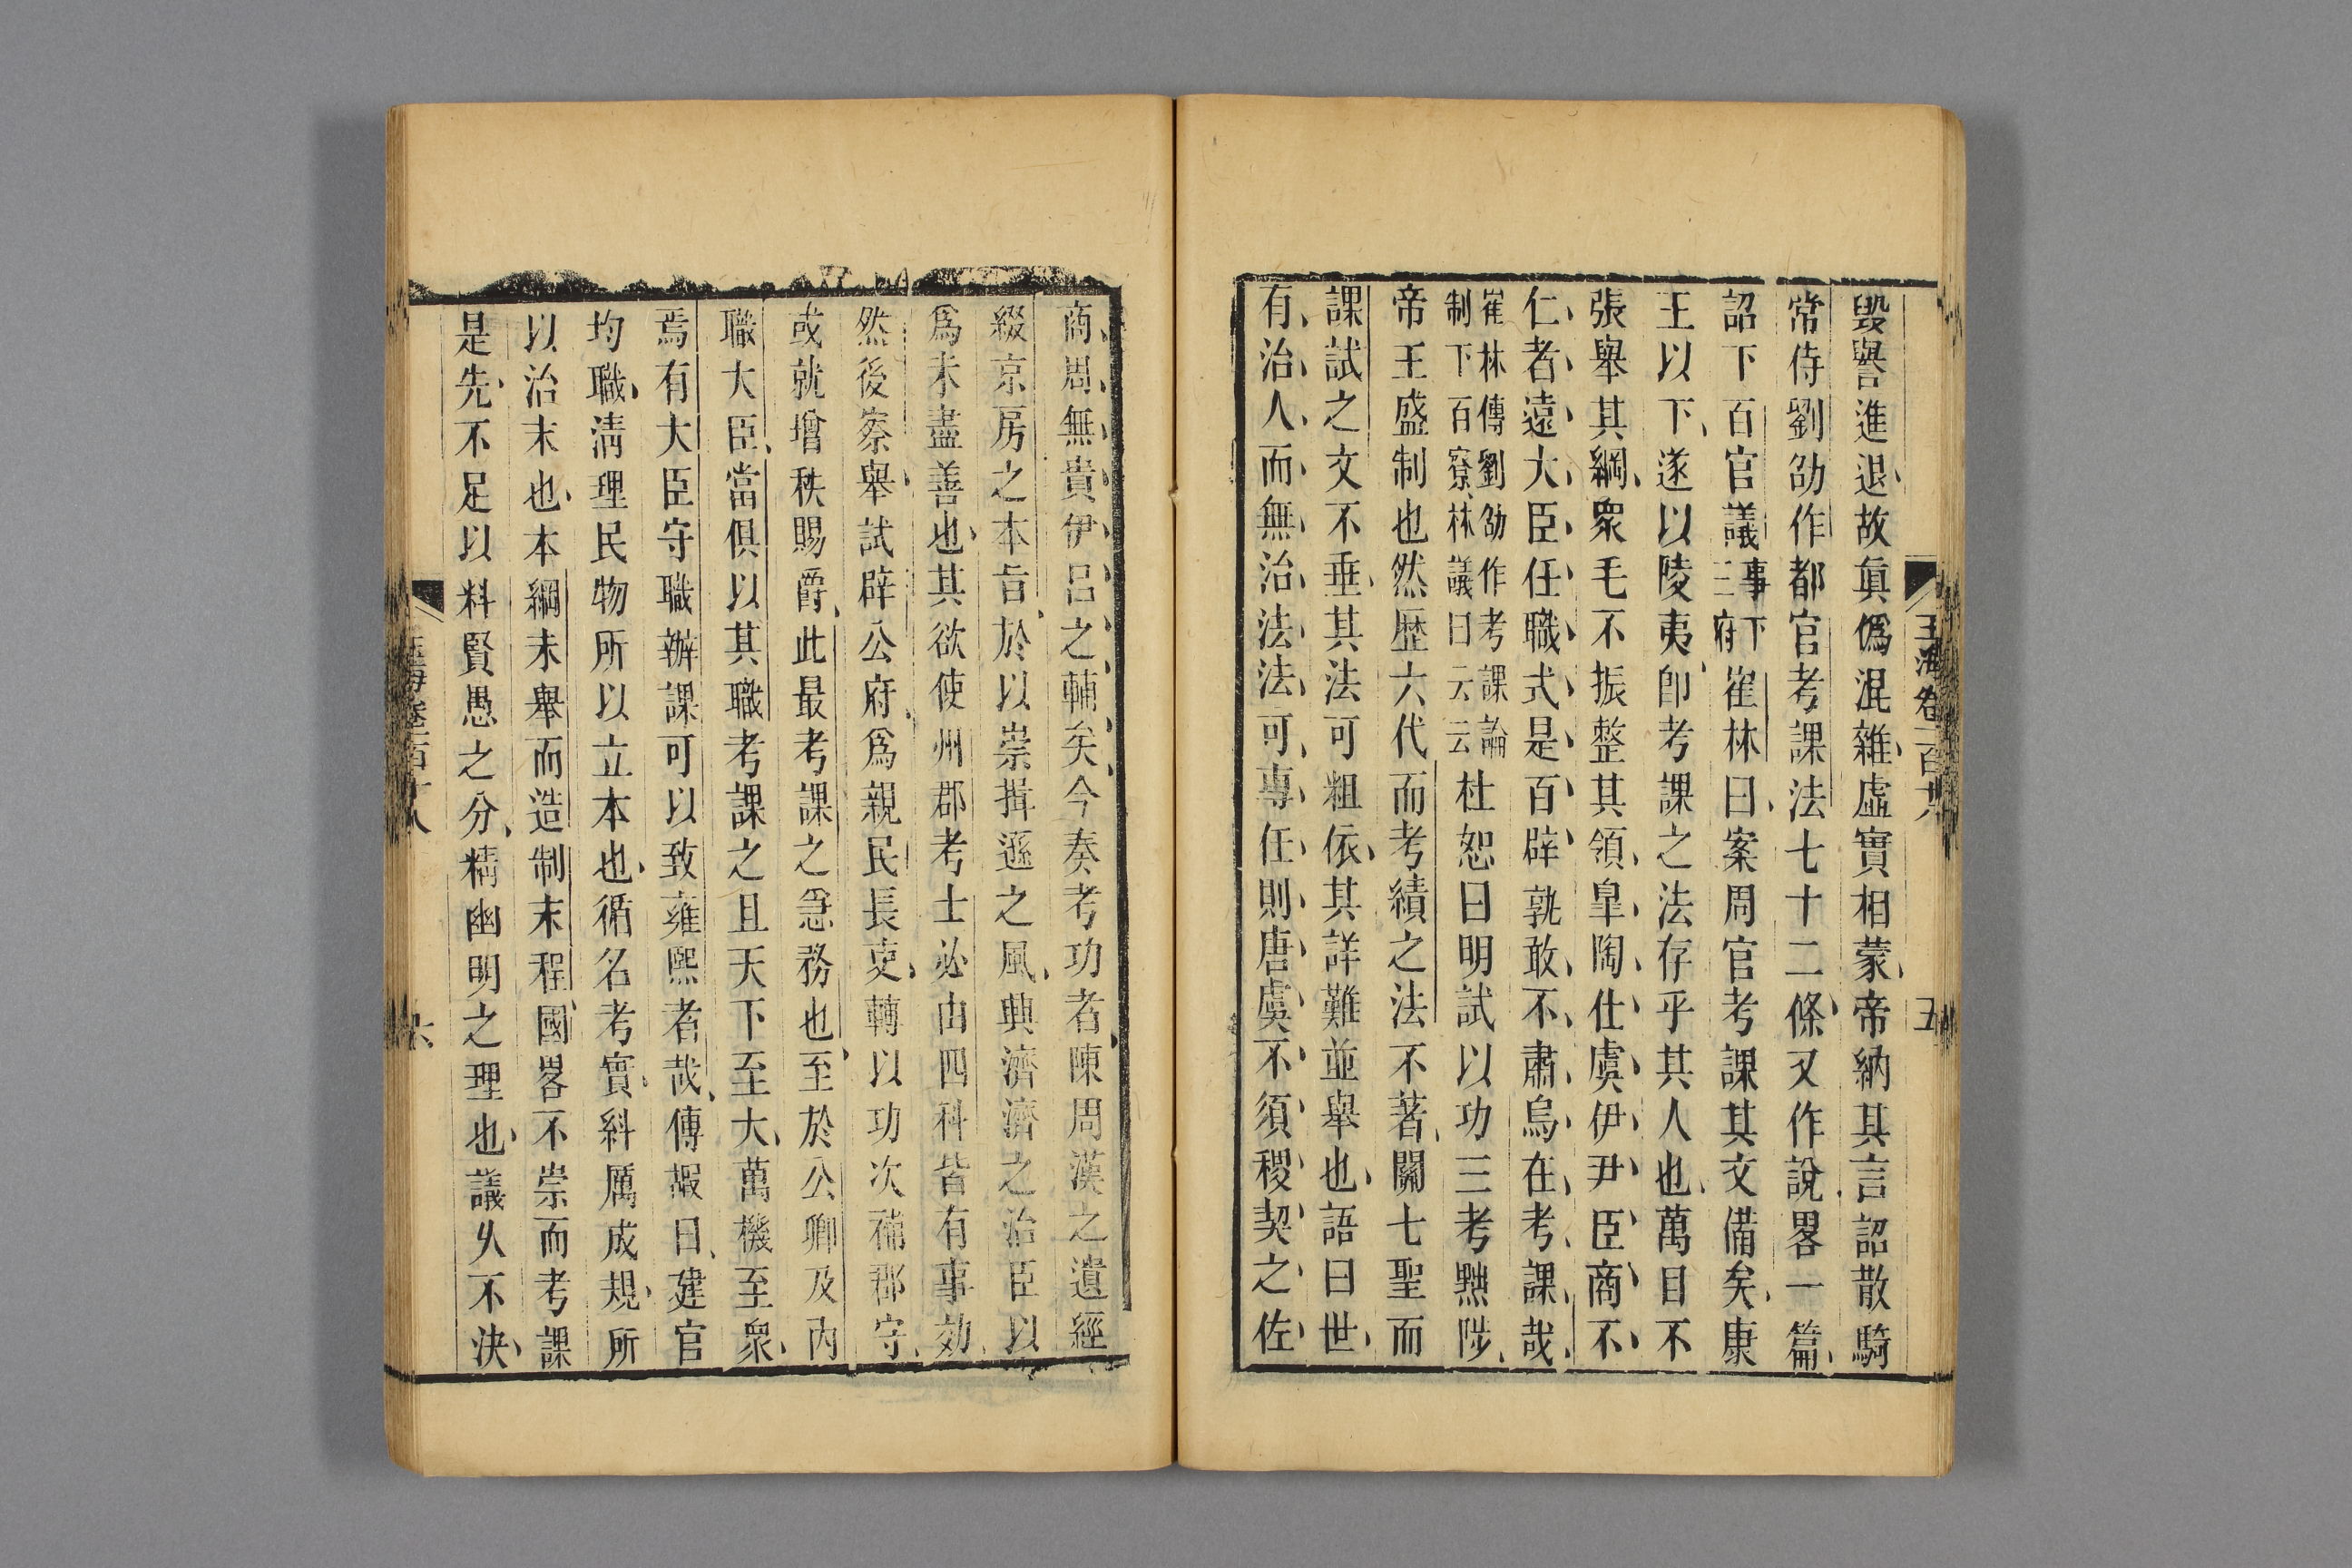 毀譽進退故眞僞混雜虛實相蒙帝納其言詔散騎
常侍劉劭作都官考課法七十二條又作說畧一篇
詔下百官議事下三府崔林曰案周官考課其文備矣康
王以下遂以陵夷卽考課之法存乎其人也萬目不
張舉其綱衆毛不振整其領臯陶仕虞伊尹臣商不
仁者遠大臣任職式是百辟孰敢不肅烏在考課哉
崔林傳劉劭作考課論制下百寮林議曰云云杜恕曰明試以功三考黜陟
帝王盛制也然歷六代而考績之法不著關七聖而
課試之文不垂其法可粗依其詳難並舉也語曰世
有治人而無治法法可專任則唐虞不須稷契之佐
玉海卷一百十八
五
商周無貴伊呂之輔矣今奏考功者陳周漢之遺經
綴京房之本旨於以崇揖遜之風興濟濟之治臣以
爲未盡善也其欲使州郡考士必由四科皆有事効
然後察舉試辟公府爲親民長吏轉以功次補郡守
或就增秩賜爵此最考課之急務也至於公卿及內
職大臣當俱以其職考課之且天下至大萬機至衆
焉有大臣守職辦課可以致雍熙者哉傅嘏曰建官
均職淸理民物所以立本也循名考實糾厲成規所
以治末也本綱未舉而造制末程國畧不崇而考課
是先不足以料賢愚之分精幽明之理也議久不決
玉海卷一百十八
六